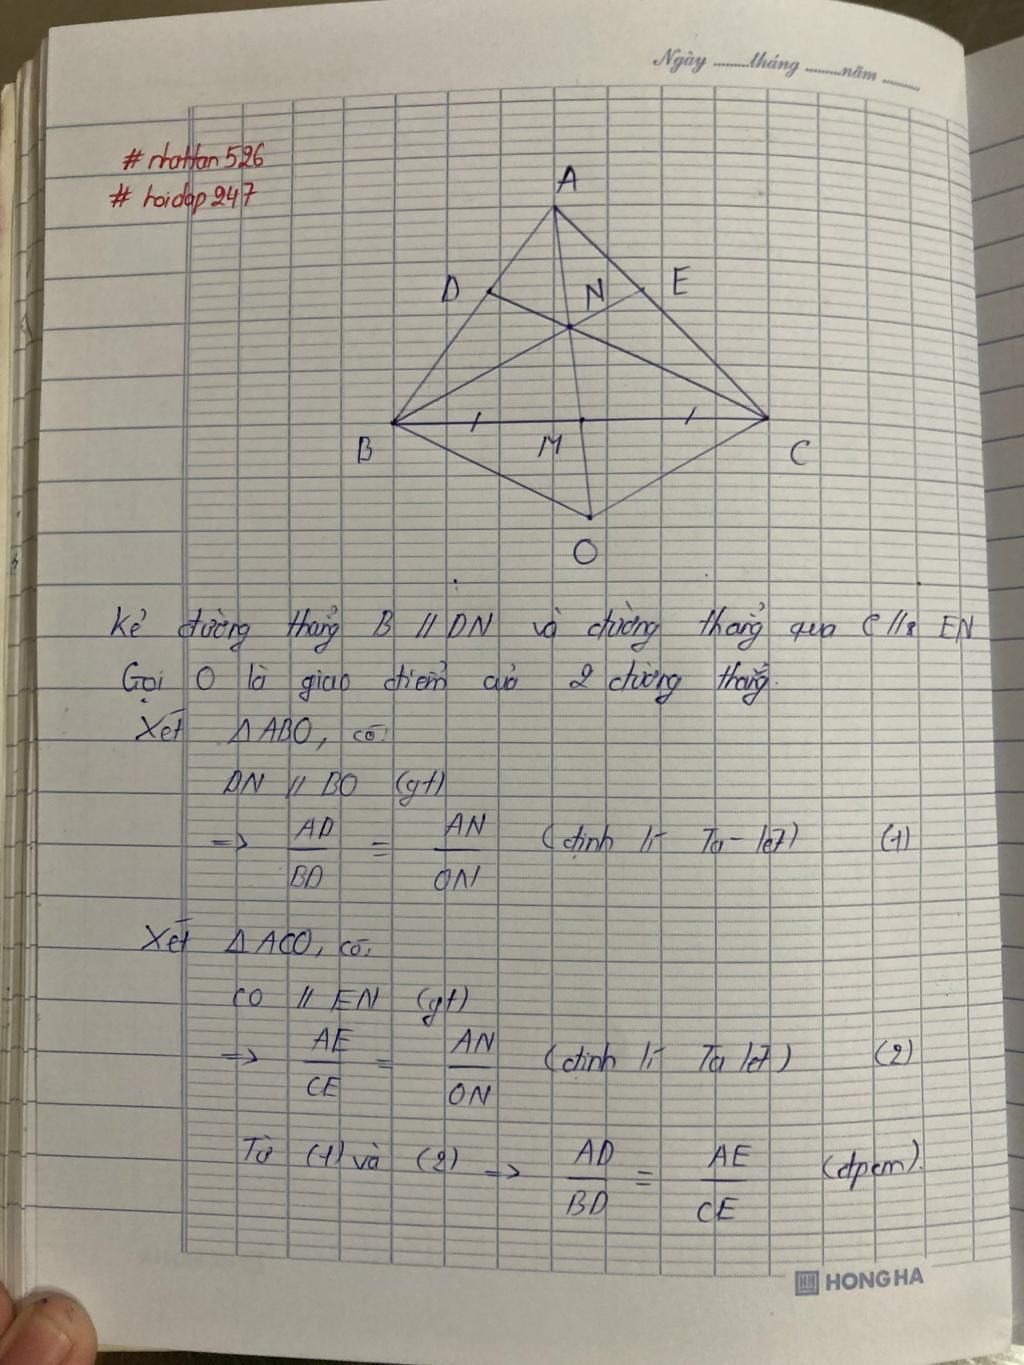 Ngày ........tháng ........năm ........
# nhattan526
# hoidap247
A
D N E
B M C
O
Kẻ đường thẳng B // DN và đường thẳng qua C // EN
Gọi O là giao điểm củả 2 đường thẳng.
Xét Δ ABO, có:
DN // BO (gt)
=> AD/BD = AN/ON (định lí Ta-lét) (1)
Xét Δ ACO, có:
CO // EN (gt)
=> AE/CE = AN/ON (định lí Ta lét) (2)
Từ (1) và (2) => AD/BD = AE/CE (đpcm).
HONG HA